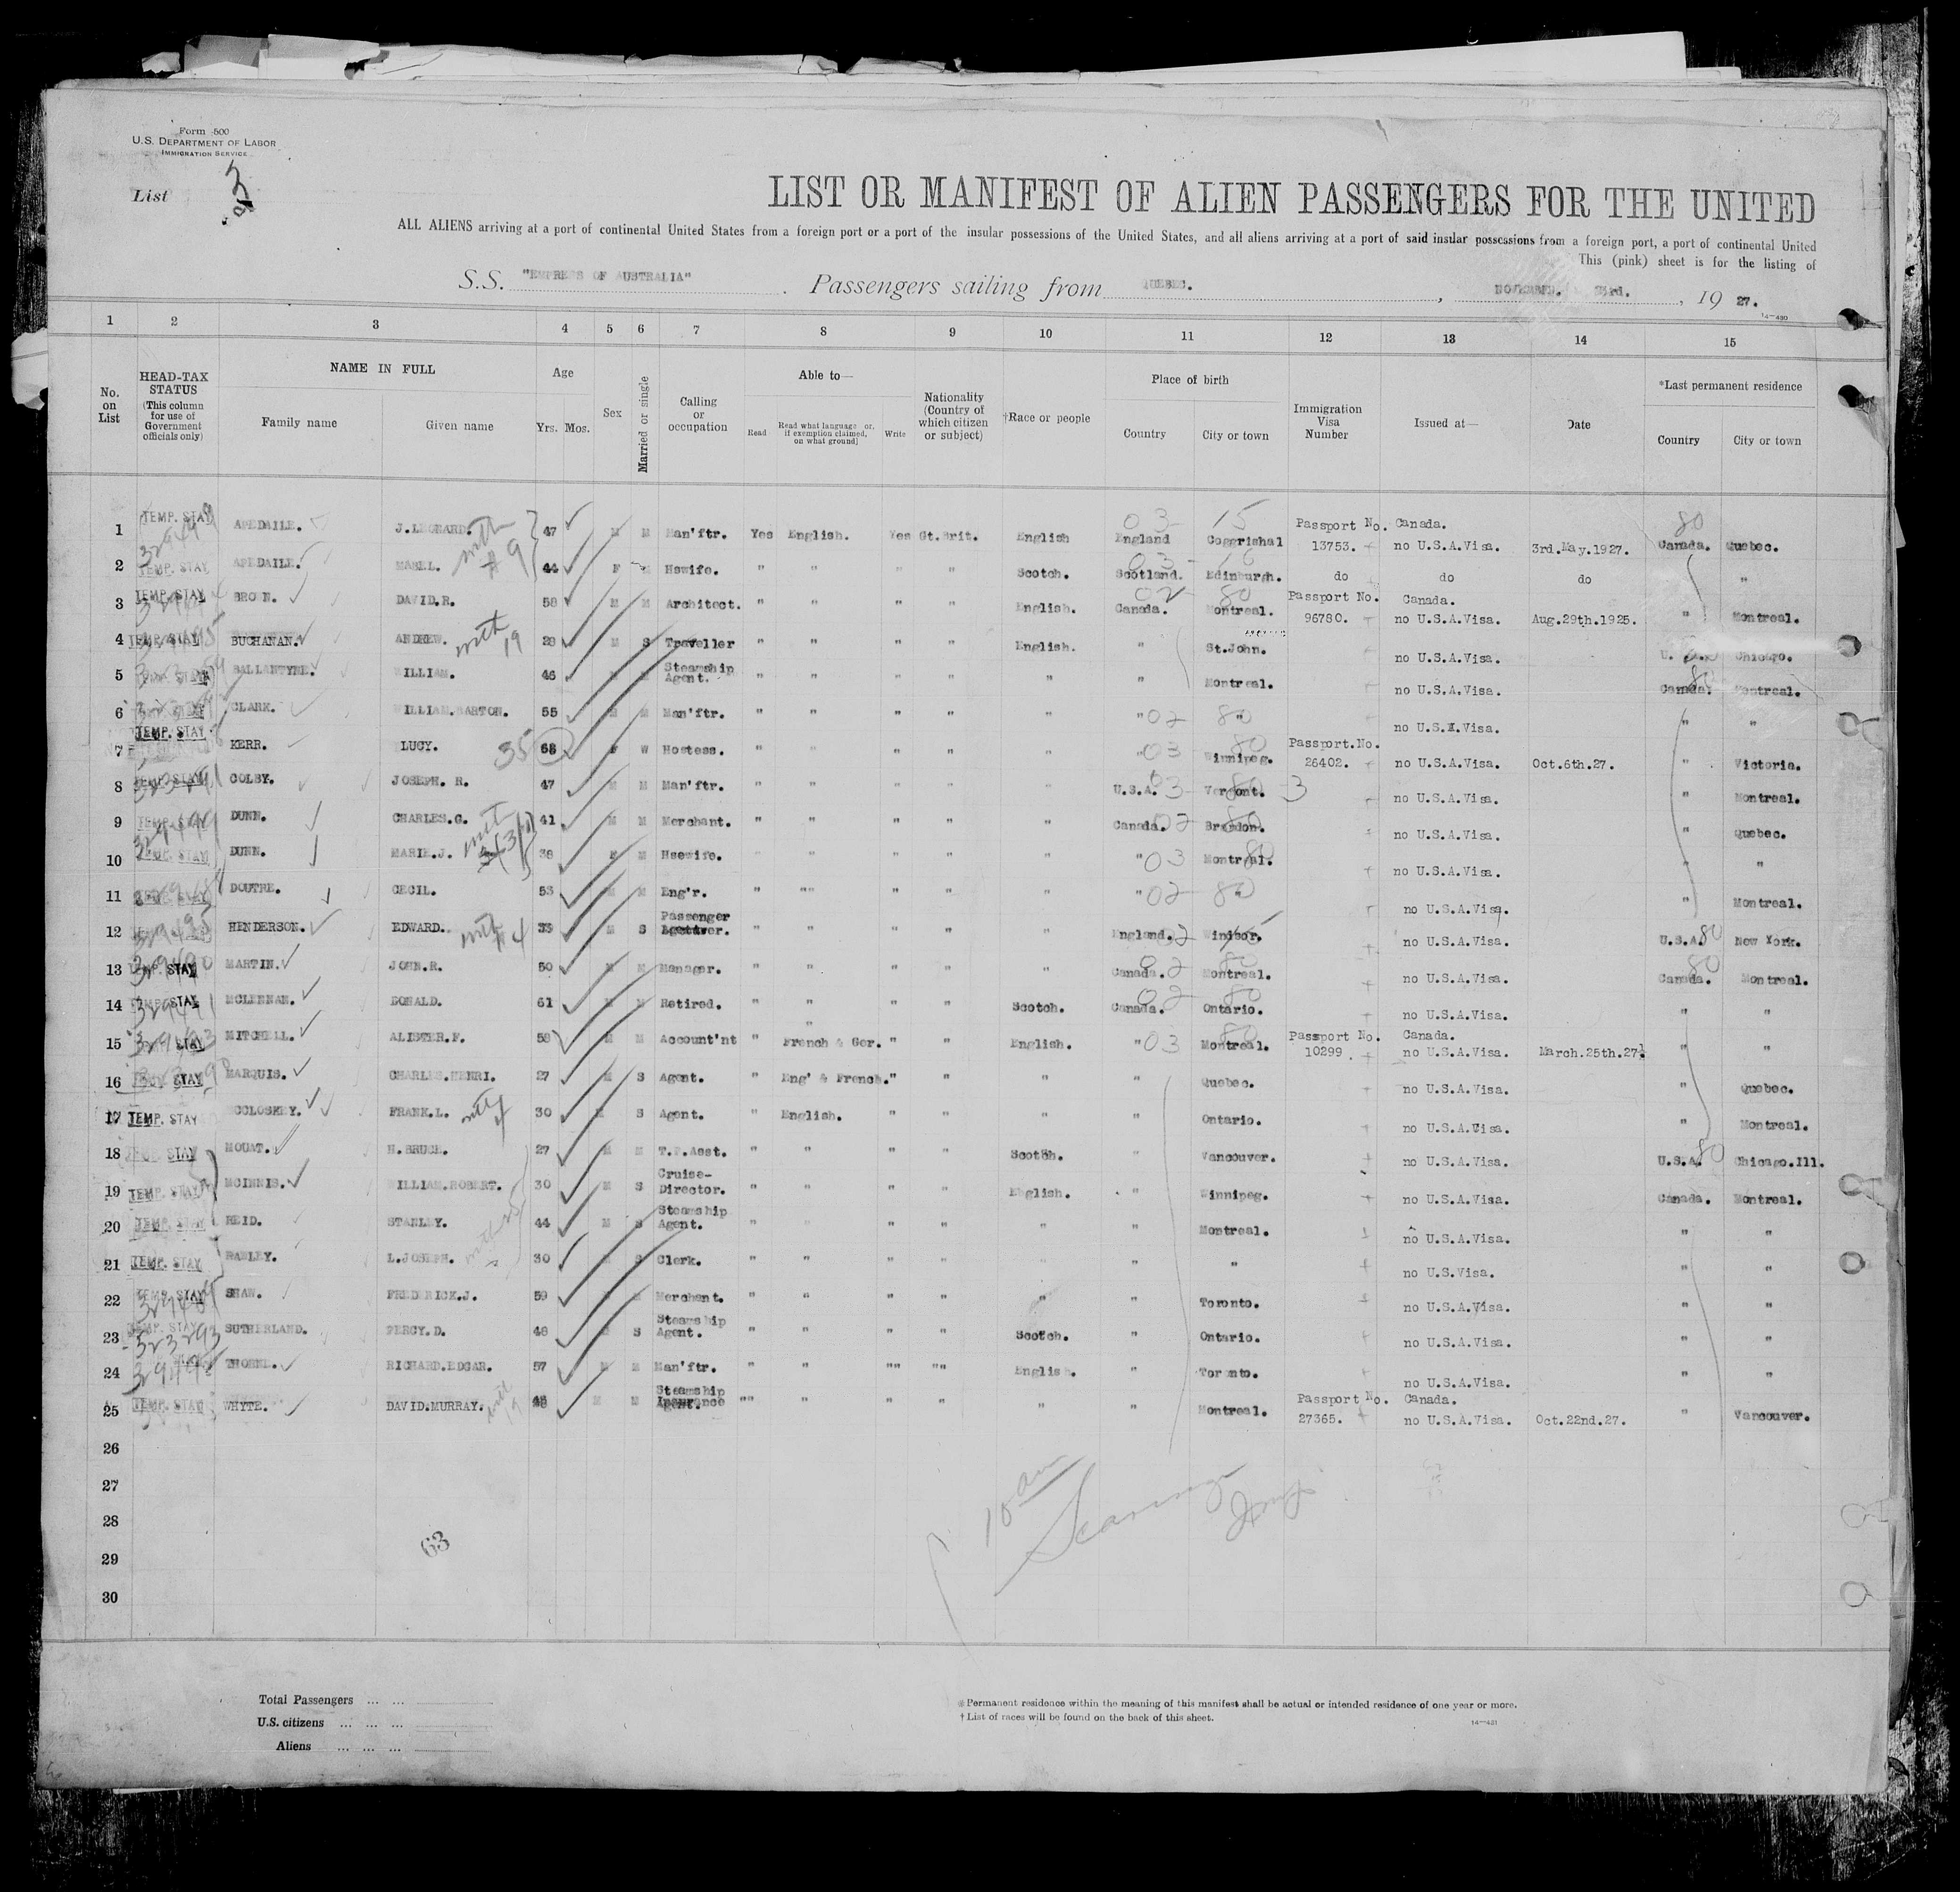 Form 500
U.S. DEPARTMENT OF LABOR
IMMIGRATION SERVICE
List
LIST OR MANIFEST OF ALIEN PASSENGERS FOR THE UNITED
ALL ALIENS arriving at a port of continental United States from a foreign port or a port of the insular possessions of the United States, and all aliens arriving at a port of said insular possessions from a foreign port, a port of continental United
This (pink) sheet is for the listing of
S.S. "EMPRESS OF AUSTRALIA" . Passengers sailing from QUEBEC. , NOVEMBER. , 19 27.
14—430
1 2 3 4 5 6 7 8 9 10 11 12 13 14 15
No. on List HEAD-TAX STATUS (This column for use of Government officials only) NAME IN FULL Family name Given name Age Yrs. Mos. Sex Married or single Calling or occupation Able to— Read Read what language or, if exemption claimed, on what ground] Write Nationality (Country of which citizen or subject) †Race or people Place of birth Country City or town Immigration Visa Number Issued at— Date *Last permanent residence Country City or town
1 TEMP. STAY APEDAILE. J.LEONARD. with #9 47 M M Man'ftr. Yes English. Yes Gt.Brit. English England 03 Coggrishal 15 Passport No. 13753. Canada. no U.S.A.Visa. 3rd.May.1927. Canada. 80 Quebec.
2 TEMP. STAY APEDAILE. MABEL. 44 F M Hswife. " " " " Scotch. Scotland. Edinburgh. do do do "
3 TEMP. STAY BROWN. DAVID.R. 58 M M Architect. " " " " English. Canada. Montreal. 80 Passport No. 96780. Canada. no U.S.A.Visa. Aug.29th.1925. " Montreal.
4 TEMP. STAY BUCHANAN. ANDREW. with 19 28 M S Traveller " " " " English. " St.John. no U.S.A.Visa. Chicago.
5 BALLANTYNE. WILLIAM. 46 M M Steamship Agent. " " " " " " Montreal. no U.S.A.Visa. Canada. 80 Montreal.
6 CLARK. WILLIAM.BARTON. 55 M M Man'ftr. " " " " " " 02 80 " no U.S.A.Visa. " "
7 TEMP. STAY KERR. LUCY. 35 68 F W Hostess. " " " " " " 03 Winnipeg. 80 Passport.No. 26402. no U.S.A.Visa. Oct.6th.27. " Victoria.
8 TEMP. STAY COLBY. JOSEPH. R. 47 M M Man'ftr. " " " " " U.S.A. 3 Vermont. 3 no U.S.A.Visa. " Montreal.
9 TEMP. STAY DUNN. CHARLES.G. with 41 M M Merchant. " " " " " Canada. 02 Brandon. 80 no U.S.A.Visa. " Quebec.
10 TEMP. STAY DUNN. MARIE.J. 38 F M Hsewife. " " " " " " 03 Montreal. 80 no U.S.A.Visa. " "
11 STAY DOUTRE. CECIL. 53 M M Eng'r. " "" " " " " 02 80 no U.S.A.Visa. " Montreal.
12 HENDERSON. EDWARD. with #4 M S Passenger " " " " " England. Windsor. no U.S.A.Visa. U.S.A. 80 New York.
13 STAY MARTIN. JOHN.R. 50 M M Manager. " " " " " Canada. Montreal. 80 no U.S.A.Visa. Canada. 80 Montreal.
14 TEMP. STAY MCLENNAN. DONALD. 61 M M Retired. " " " " Scotch. Canada. 02 Ontario. 80 no U.S.A.Visa. " "
15 STAY MITCHELL. ALISTER.F. 58 M M Account'nt " " French & Ger. " " English. " 03 Montreal. 80 Passport No. 10299. Canada. no U.S.A.Visa. March.25th.27. " "
16 STAY MARQUIS. CHARLES.HENRI. 27 M S Agent. " Eng' & French. " " " " Quebec. no U.S.A.Visa. " Quebec.
17 TEMP. STAY MCCLOSKEY. FRANK.L. with 4 30 M S Agent. " English. " " " " Ontario. no U.S.A.Visa. " Montreal.
18 STAY MOUAT. H.BRUCE. 27 M M T.P.Asst. " " " " Scotch. " Vancouver. no U.S.A.Visa. U.S.A. 80 Chicago.Ill.
19 TEMP. STAY MCINNIS. WILLIAM.ROBERT. 30 M S Cruise-Director. " " " " English. " Winnipeg. no U.S.A.Visa. Canada. Montreal.
20 TEMP. STAY REID. STANLEY. 44 M S Steamship Agent. " " " " " " Montreal. no U.S.A.Visa. " "
21 TEMP. STAY RAWLEY. L.JOSEPH. 30 S Clerk. " " " " " " " no U.S.Visa. " "
22 TEMP. STAY SHAW. FREDERICK.J. 59 Merchant. " " " " " " Toronto. no U.S.A.Visa. " "
23 TEMP. STAY 323293 SUTHERLAND. PERCY.D. 46 S Steamship Agent. " " " " Scotch. " Ontario. no U.S.A.Visa. " "
24 THORNE. RICHARD.EDGAR. 57 M M Man'ftr. " " "" "" English. " Toronto. no U.S.A.Visa. " "
25 TEMP. STAY WHYTE. DAVID.MURRAY. M M Steamship Agent. "" " " " " " Montreal. Passport No. 27365. Canada. no U.S.A.Visa. Oct.22nd.27. " Vancouver.
26
27
28
29
30
63
10 am
Total Passengers ... ...
U.S. citizens ... ... ...
Aliens ... ... ...
* Permanent residence within the meaning of this manifest shall be actual or intended residence of one year or more.
† List of races will be found on the back of this sheet.
14—431